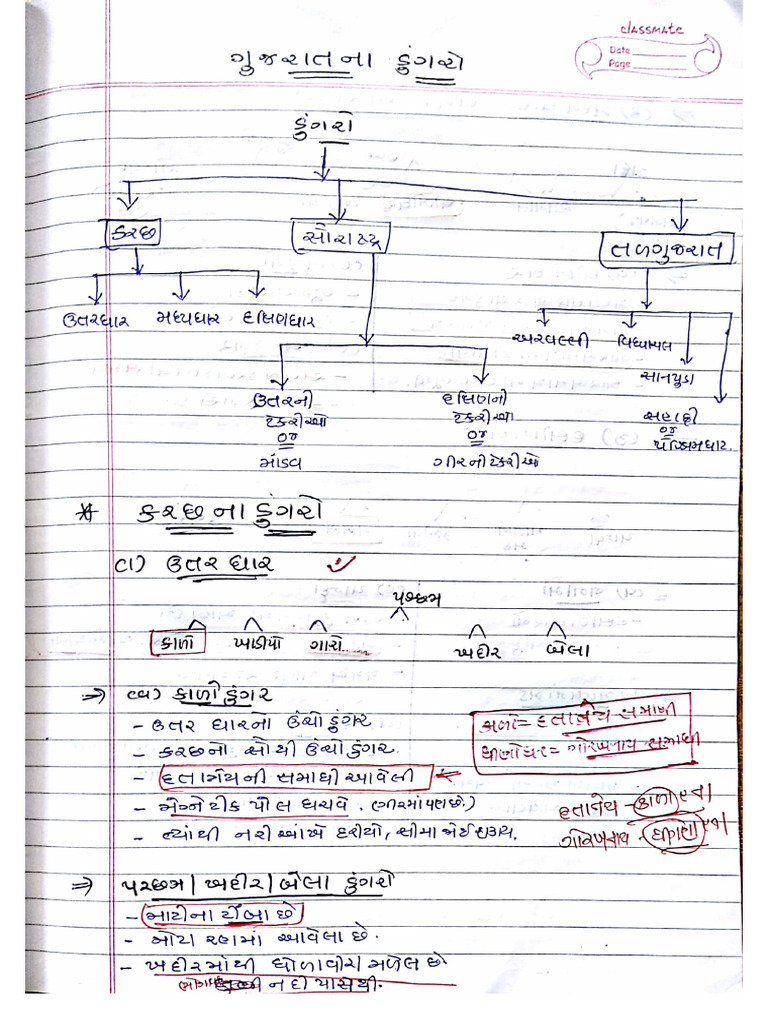 classmate
Date
Page
ગુજરાતના ડુંગરો
ડુંગરો
કચ્છ
સૌરાષ્ટ્ર
તળગુજરાત
ઉતરધાર
મધ્યધાર
દક્ષિણધાર
અરવલ્લી
વિંધ્યાચલ
સાતપુડા
સહ્યાદ્રી
or
પશ્ચિમઘાટ.
ઉતરની
ટેકરીઓ
or
માંડવ
દક્ષિણની
ટેકરીઓ
or
ગીરની ટેકરીઓ
* કચ્છના ડુંગરો
(1) ઉતર ધાર
પચ્છમ
કાળો
ખાડીયો
ગારો
ખદીર
બેલા
⇒ (અ) કાળો ડુંગર
- ઉતર ધારનો ઉંચો ડુંગર
- કચ્છનો સૌથી ઉંચો ડુંગર.
- દતાત્રેયની સમાધી આવેલી
- મેગ્નેટીક પોલ ધરાવે. (ગીરમાં પણ છે.)
- ત્યાંથી નરી આંખે દરીયો, સીમા જોઈ શકાય.
કાળો = દતાત્રેય સમાધી
ધીણોધર = ગોરખનાથ સમાધી
દતાત્રેય - કાળા
ગોરખનાથ -
⇒ પચ્છમ / ખદીર / બેલા ડુંગરો
- માટીના ટીંબા છે
- મોટા રણમાં આવેલા છે.
- ખદીરમાંથી ધોળાવીરા મળેલ છે
નદી પાસેથી.